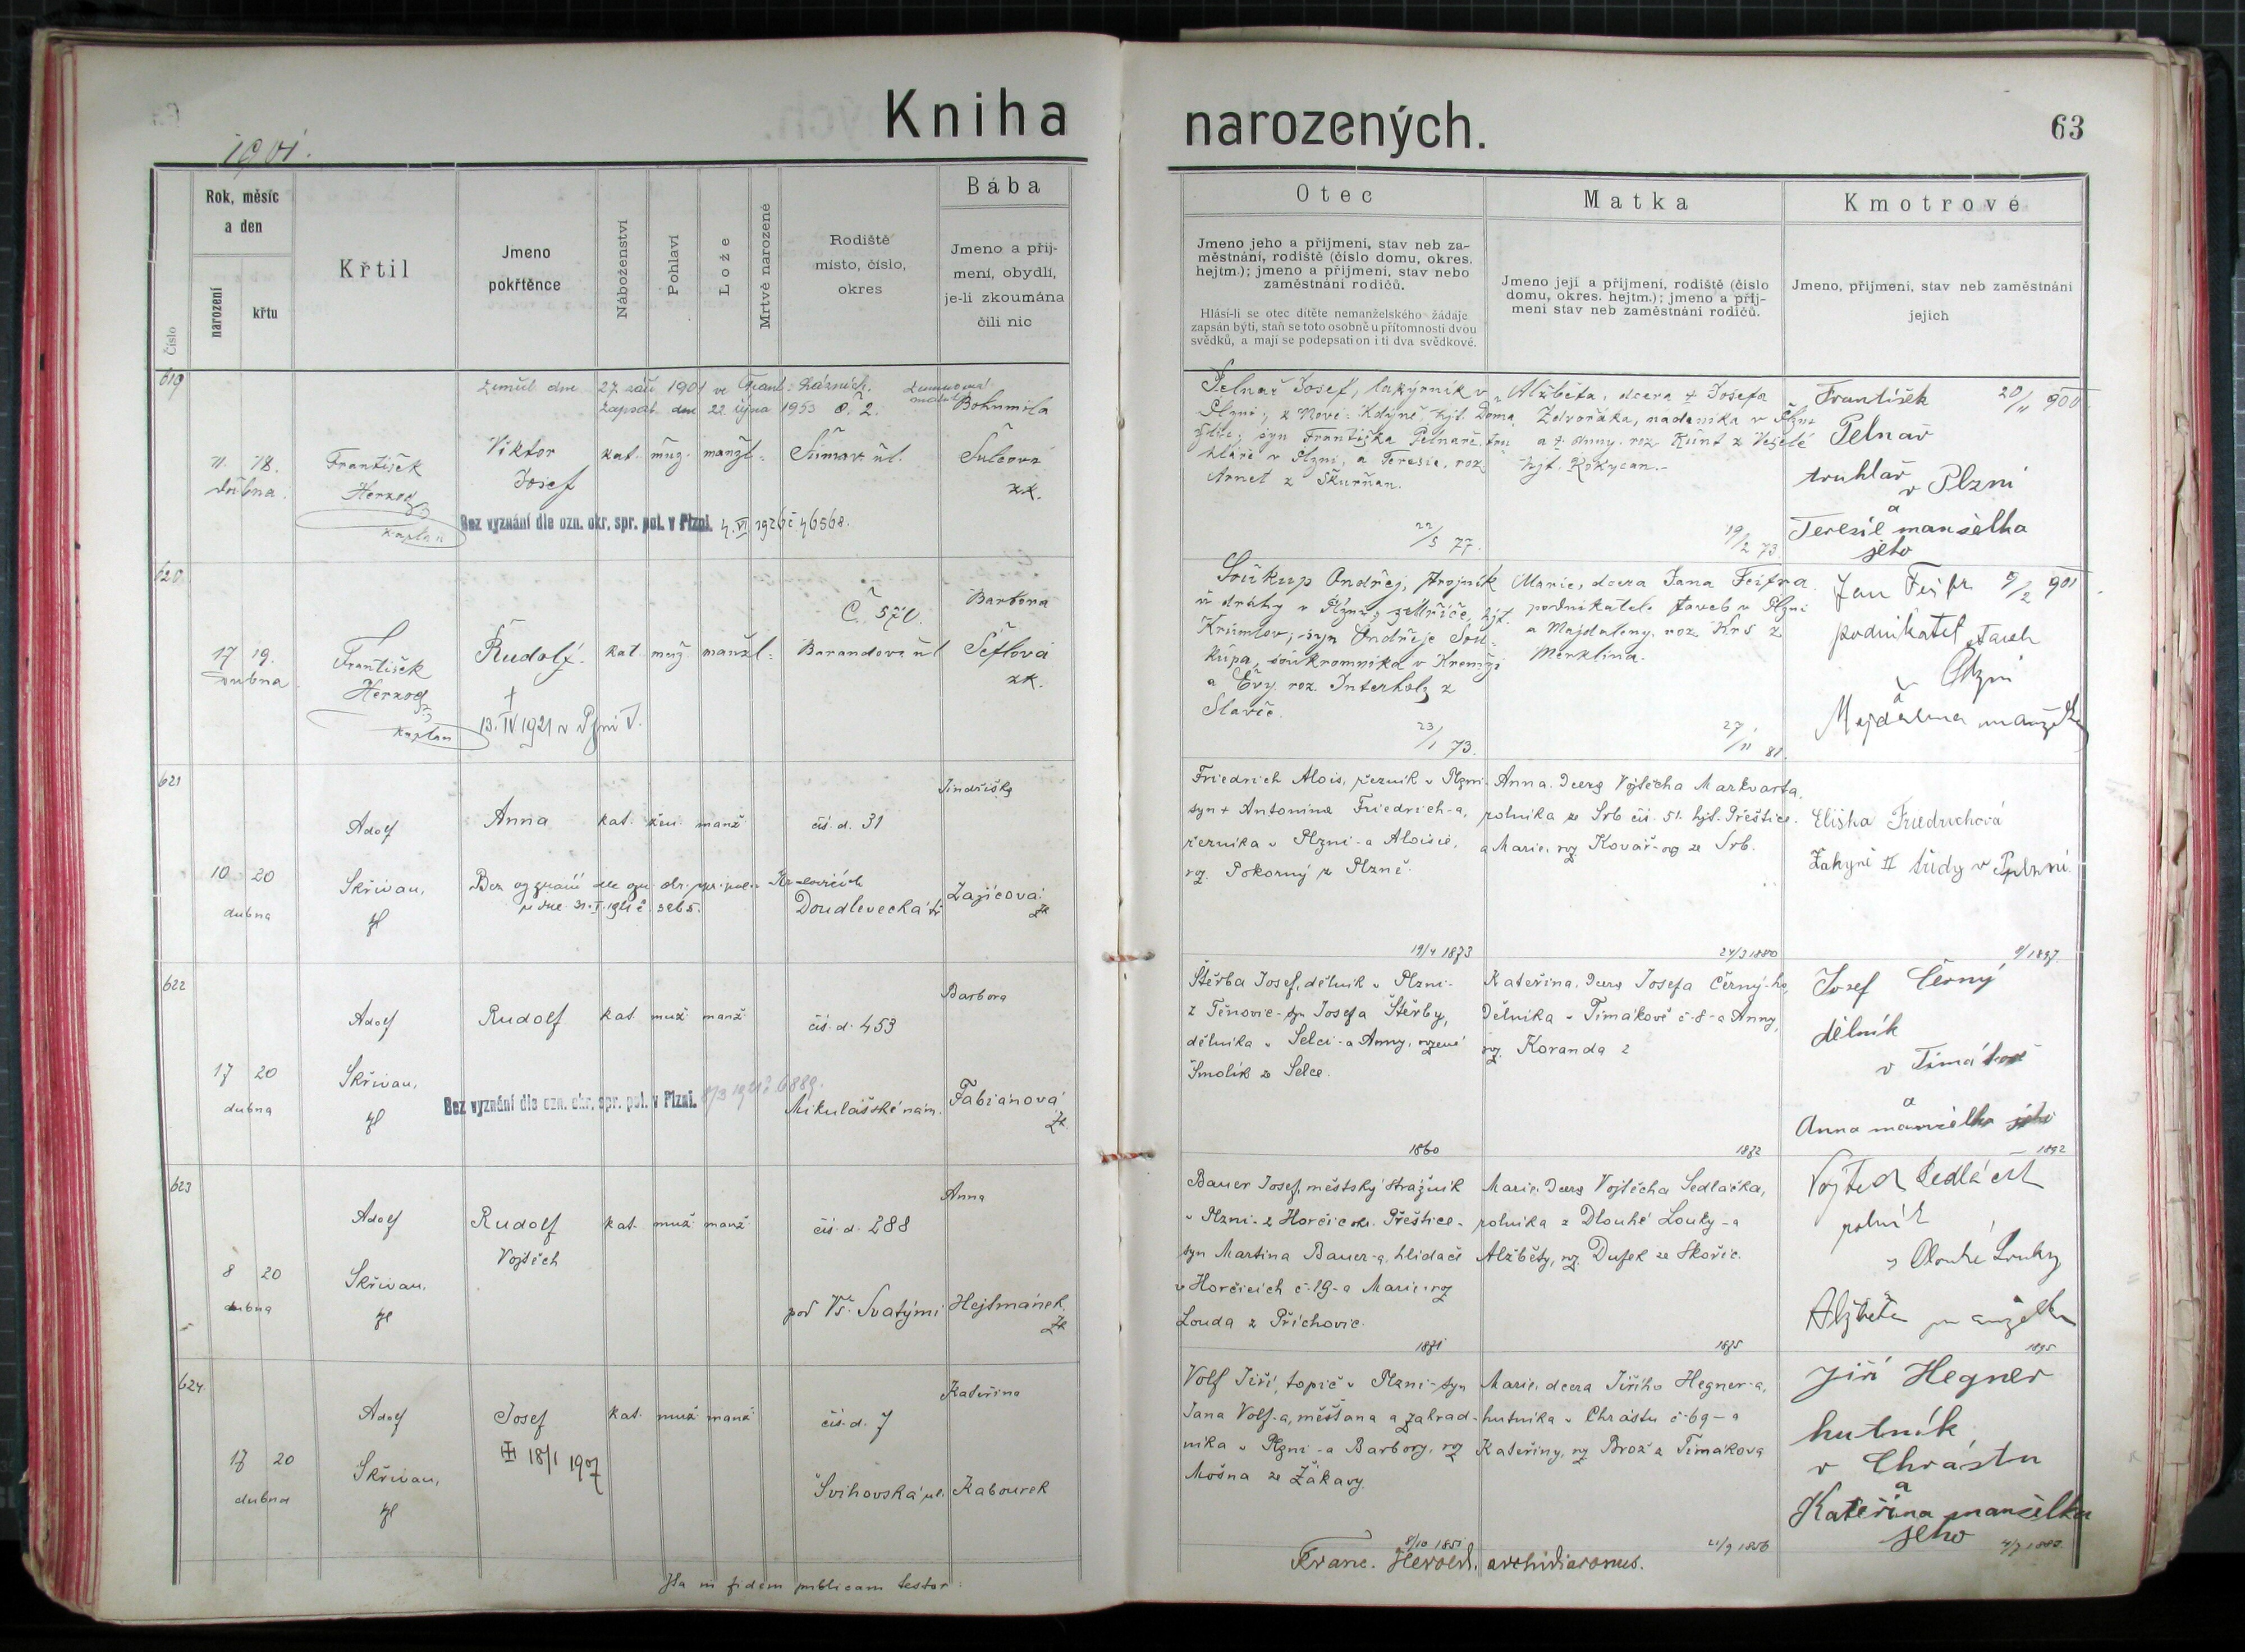 Kniha narozených.
63
1901.
Číslo
Rok, měsíc
a den
narození
křtu
Křtil
Jmeno
pokřtěnce
Náboženství
Pohlaví
Lože
Mrtvě narozené
Rodiště
místo, číslo,
okres
Bába
Jmeno a přij-
mení, obydlí,
je-li zkoumána
čili nic
Otec
Jmeno jeho a přijmení, stav neb za-
městnání, rodiště (číslo domu, okres.
hejtm.); jmeno a přijmení, stav nebo
zaměstnání rodičů.
Hlásí-li se otec dítěte nemanželského žádaje
zapsán býti, staň se toto osobně u přítomnosti dvou
svědků, a mají se podepsati on i ti dva svědkové.
Matka
Jmeno její a přijmení, rodiště (číslo
domu, okres. hejtm.); jmeno a přij-
mení stav neb zaměstnání rodičů.
Kmotrové
Jmeno, přijmení, stav neb zaměstnání
jejich
619
zemřel dne 27 září 1901 ve Frant. Lázních.
zapsáno dne 22 října 1953
č. 2.
11. 18.
dubna
František
Herzog
kaplan
Viktor
Josef
kat. muž. manžel.
Šumav. ul.
Bohumila
Šulcová
zk.
Bez vyznání dle ozn. okr. spr. pol. v Plzni. 4. VI 1926 č 46568.
Pelnař Josef, lakýrník v
Plzni, z Nové Kdyně hjt. Doma
žlice; syn Františka Pelnaře, tru
hláře v Plzni, a Teresie, roz.
Arnet z Škurňan.
22/5 77.
Alžběta, dcera † Josefa
Zdvořáka, nádeníka v Plzni
a † Anny, roz. z Veselé
hjt. Rokycan.
19/2 73.
František 20/11 900
Pelnař
truhlář
v Plzni
a
Teresie manželka
jeho
620.
17 19.
dubna
František
Herzog
kaplan
Rudolf.
†
13. IV 1921 v Plzni
kat. muž. manžel.
Č. 570.
Barandova ul.
Barbora
Šeflová
zk.
Soukup Ondřej, strojník
u dráhy v Plzni, z Mříče, hjt.
Krumlov; syn Ondřeje Sou-
kupa, soukromníka v Kremži
a Evy, roz. Interholz z
Slavče.
23/1 73.
Marie, dcera Jana Feifra
podnikatele staveb v Plzni
a Majdaleny, roz. Krs z
Merklína.
27/11 81.
Jan Feifr 9/2 901
podnikatel staveb
v Plzni
a
Majdalena manželka
621
10 20
dubna
Adolf
Skřivan,
Anna
kat. žen. manž.
čís. d. 31
Doudlevecká tř.
Jindřiška
Zajícová
zk
Bez vyznání dle ozn. okr. spr. pol. v Kralovicích
z dne 31. I. 1921 č. 3265.
Friedrich Alois, řezník v Plzni-
syn † Antonína Friedrich-a,
řezníka v Plzni-a Aloisie,
roz. Pokorný z Plzně.
19/4 1873
Anna, dcera Vojtěcha Markvarta,
rolníka ze Srb čís. 51. hjt. Přeštice-
a Marie, roz. Kovář-ové ze Srb.
24/3 1880
Eliška Friedrichová
žákyně II třídy v Plzni
9/1897.
622
17 20
dubna
Adolf
Skřivan,
Rudolf
kat. muž. manž.
čís. d. 453
Mikulášské nám.
Barbora
Fabiánová
zk.
Bez vyznání dle ozn. okr. spr. pol. v Plzni. 8/3 1921 č 6889.
Štěrba Josef, dělník v Plzni-
z Těnovic-syn Josefa Štěrby,
dělníka v Selci-a Anny, rozené
Smolík ze Selce.
1860
Kateřina, dcera Josefa Černý-ho,
dělníka v Timákově č-8-a Anny,
roz. Koranda z
1872
Josef Černý
dělník
v Timákově
a
Anna manželka jeho
1892
623
8 20
dubna
Adolf
Skřivan,
Rudolf
Vojtěch
kat. muž. manž.
čís. d. 288
pod Vš. Svatými
Anna
Hejtmánek
zk
Bauer Josef, městský strážník
v Plzni-z Horčic okr. Přeštice-
syn Martina Bauer-a, hlídače
v Horčicích č-19-a Marie, roz
Louda z Příchovic.
1871
Marie, dcera Vojtěcha Sedláčka,
rolníka z Dlouhé Louky-a
Alžběty, roz. Dufek ze Skořic.
1875
Vojtěch Sedláček
rolník
z Dlouhé Louky
Alžběta manželka
1895
624
17 20
dubna
Adolf
Skřivan,
Josef
18/1 1907
kat. muž. manž.
čís. d. 7
Švihovská ul.
Kateřina
Kabourek
Volf Jiří, topič v Plzni-syn
Jana Volf-a, měšťana a zahrad-
níka v Plzni-a Barbory, roz
Mošna ze Žákavy.
8/10 1851
Marie, dcera Jiřího Hegner-a,
hutníka v Chrástu č-69-a
Kateřiny, roz Brož z Timákova
21/9 1856
Jiří Hegner
hutník
v Chrástu
a
Kateřina manželka
jeho
4/7 1880.
Ita in fidem publicam testor:
Franc. Herold, archidiaconus.